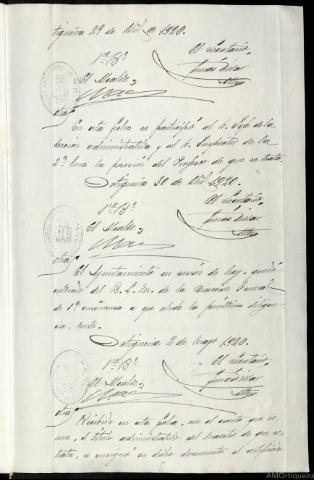 Ortigueira 29 de Abril de 1920.
El Secretario,
Vº Bº
El Alcalde,
Otra/
En esta fecha se participó al Sr. Jefe de la
Sección administrativa y al Sr. Inspector de la
2ª Zona la posesión del Profesor de que se trata.
Ortigueira 30 de Abril, 1920.
Vº Bº
El Secretario,
El Alcalde,
Otra/
El Ayuntamiento en sesión de hoy, quedó
enterado del B. L. M. de la Dirección General
de 1ª enseñanza a que alude la penúltima diligen-
cia.
Ortigueira 2 de Mayo 1920.
Vº Bº
El Secretario,
El Alcalde,
Otra/
Recibido en esta fecha, con el escrito que se
une, el título administrativo del maestro de que se
trata, se consignó en dicho documento el certificado
AMOrtigueira